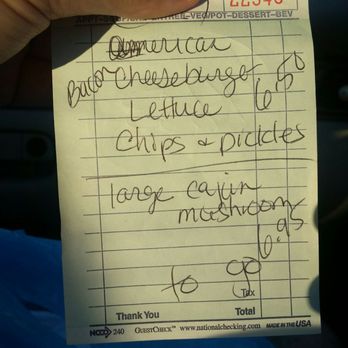 APPT-SOUP/SAL-ENTREE-VEG/POT-DESSERT-BEV
American
Bacon Cheeseburger 6.50
Lettuce
Chips & pickles
large cajun
mushroom 6.95
to go
Tax
Thank You Total
240 GUESTCHECK™ www.nationalchecking.com MADE IN THE USA